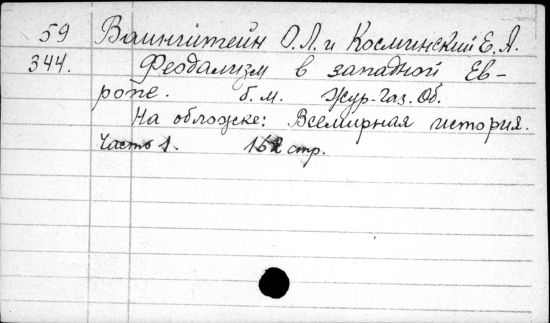 59 Вайнштейн О.Л. и Косминский Е.А.
344. Феодализм в западной Ев-
ропе. б.м. Жур-газ. Об.
На обложке: Всемирная история.
Часть 1. 162 стр.